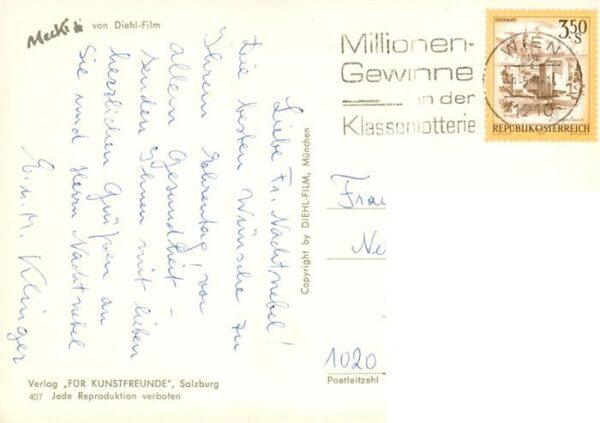 Mecki von Diehl-Film
Liebe Fr. Nachtnebel!
Die besten Wünsche zu
Ihrem Ehrentag! vor
allem Gesundheit -
senden Ihnen mit lieben
herzlichen Grüßen an
Sie und Herrn Nachtnebel
E. u. M. Klinger
Verlag „FÜR KUNSTFREUNDE", Salzburg
407 Jede Reproduktion verboten
Copyright by DIEHL-FILM, München
Millionen-
Gewinne
in der
Klassenlotterie
WIEN
OBERWART
3.50
S
REPUBLIK ÖSTERREICH
Frau
Ne
1020
Postleitzahl